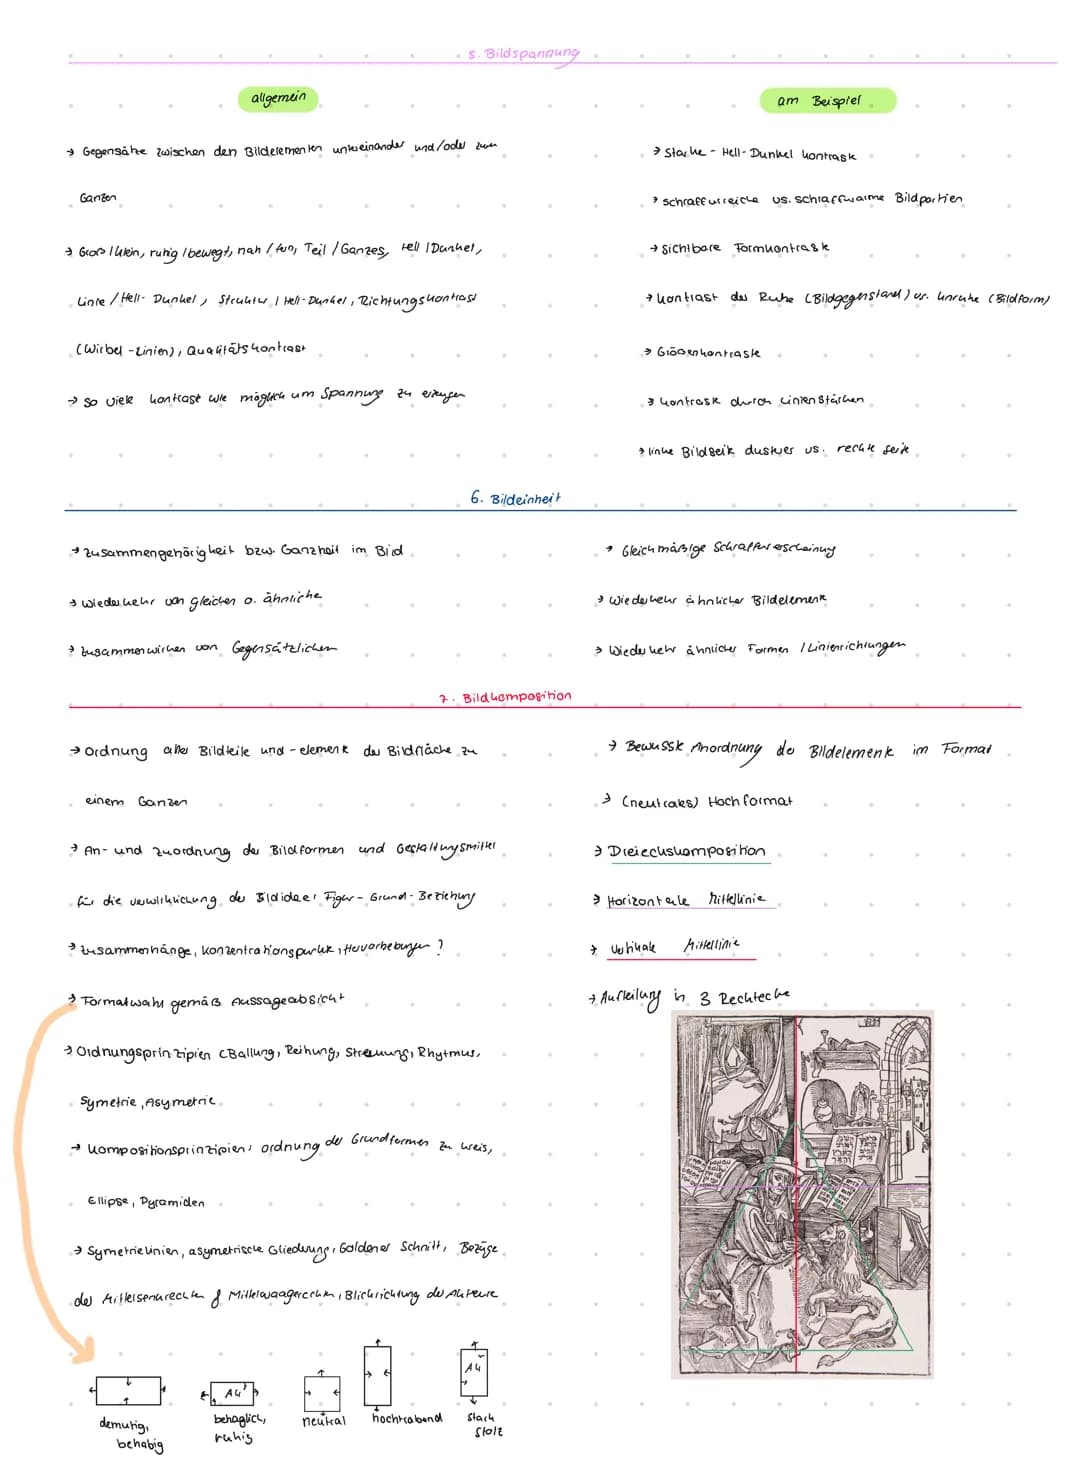 5. Bildspannung
allgemein
am Beispiel
→ Gegensätze zwischen den Bildelementen untereinander und/oder zum
Ganzen
→ Groß/klein, ruhig/bewegt, nah/fern, Teil/Ganzes, Hell/Dunkel,
Linie/Hell-Dunkel, Struktur/Hell-Dunkel, Richtungskontrast
(Wirbel-Linien), Qualitätskontrast
→ so viele kontrast wie möglich um Spannung zu erzeugen
→ Starke-Hell-Dunkel kontraste
→ schraffurreiche vs. schraffurarme Bildpartien
→ Sichtbare Formkontraste
→ Kontrast der Ruhe (Bildgegenstand) vs. Unruhe (Bildform)
→ Größenkontraste
→ Kontraste durch Linienstärken
→ linke Bildseite dusterer vs. rechte Seite
6. Bildeinheit
→ Zusammengehörigkeit bzw. Ganzheit im Bild
→ Wiederkehr von gleichen o. ähnliche
→ Zusammenwirken von Gegensätzlichem
→ Gleichmäßige Schraffurerscheinung
→ Wiederkehr ähnlicher Bildelemente
→ Wiederkehr ähnlicher Formen / Linienrichtungen
7. Bildkomposition
→ Ordnung aller Bildteile und -elemente der Bildfläche zu
einem Ganzen
→ An- und Zuordnung der Bildformen und Gestaltungsmittel
für die verwirklichung der Bildidee: Figur-Grund-Beziehung
→ Zusammenhänge, Konzentrationspunkte, Hervorhebungen?
→ Formatwahl gemäß Aussageabsicht
→ Ordnungsprinzipien (Ballung, Reihung, Streuung, Rhytmus,
Symetrie, Asymetrie
→ Kompositionsprinzipien: ordnung der Grundformen zu Kreis,
Ellipse, Pyramiden
→ Symetrielinien, asymetrische Gliederung, Goldener Schnitt, Bezüge
der Mittelsenkrechten & Mittelwaagerechten, Blickrichtung der Akteure
→ Bewusste Anordnung der Bildelemente im Format
→ (neutrales) Hochformat
→ Dreieckskomposition
→ Horizontale Mittellinie
→ Vertikale Mittellinie
→ Aufteilung in 3 Rechtecke
A4
A4
demutig,
behabig
behaglich,
ruhig
neutral
hochtrabend
stark
stolz